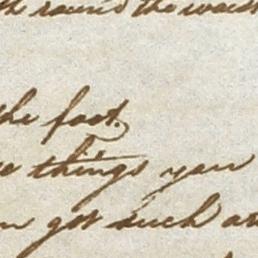 the round the wais
the foot.
things you
got such a